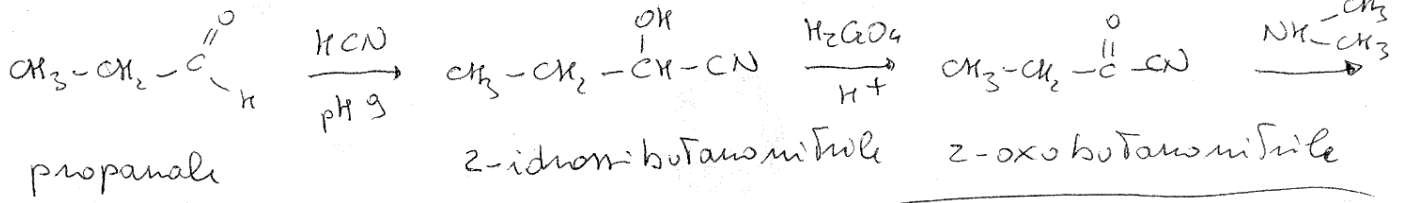 CH3-CH2-C O H HCN pH 9 CH3-CH2-CH-CN OH H2CrO4 H+ CH3-CH2-C-CN O NH-CH3 CH3
propanale 2-idrossibutanonitrile 2-oxobutanonitrile